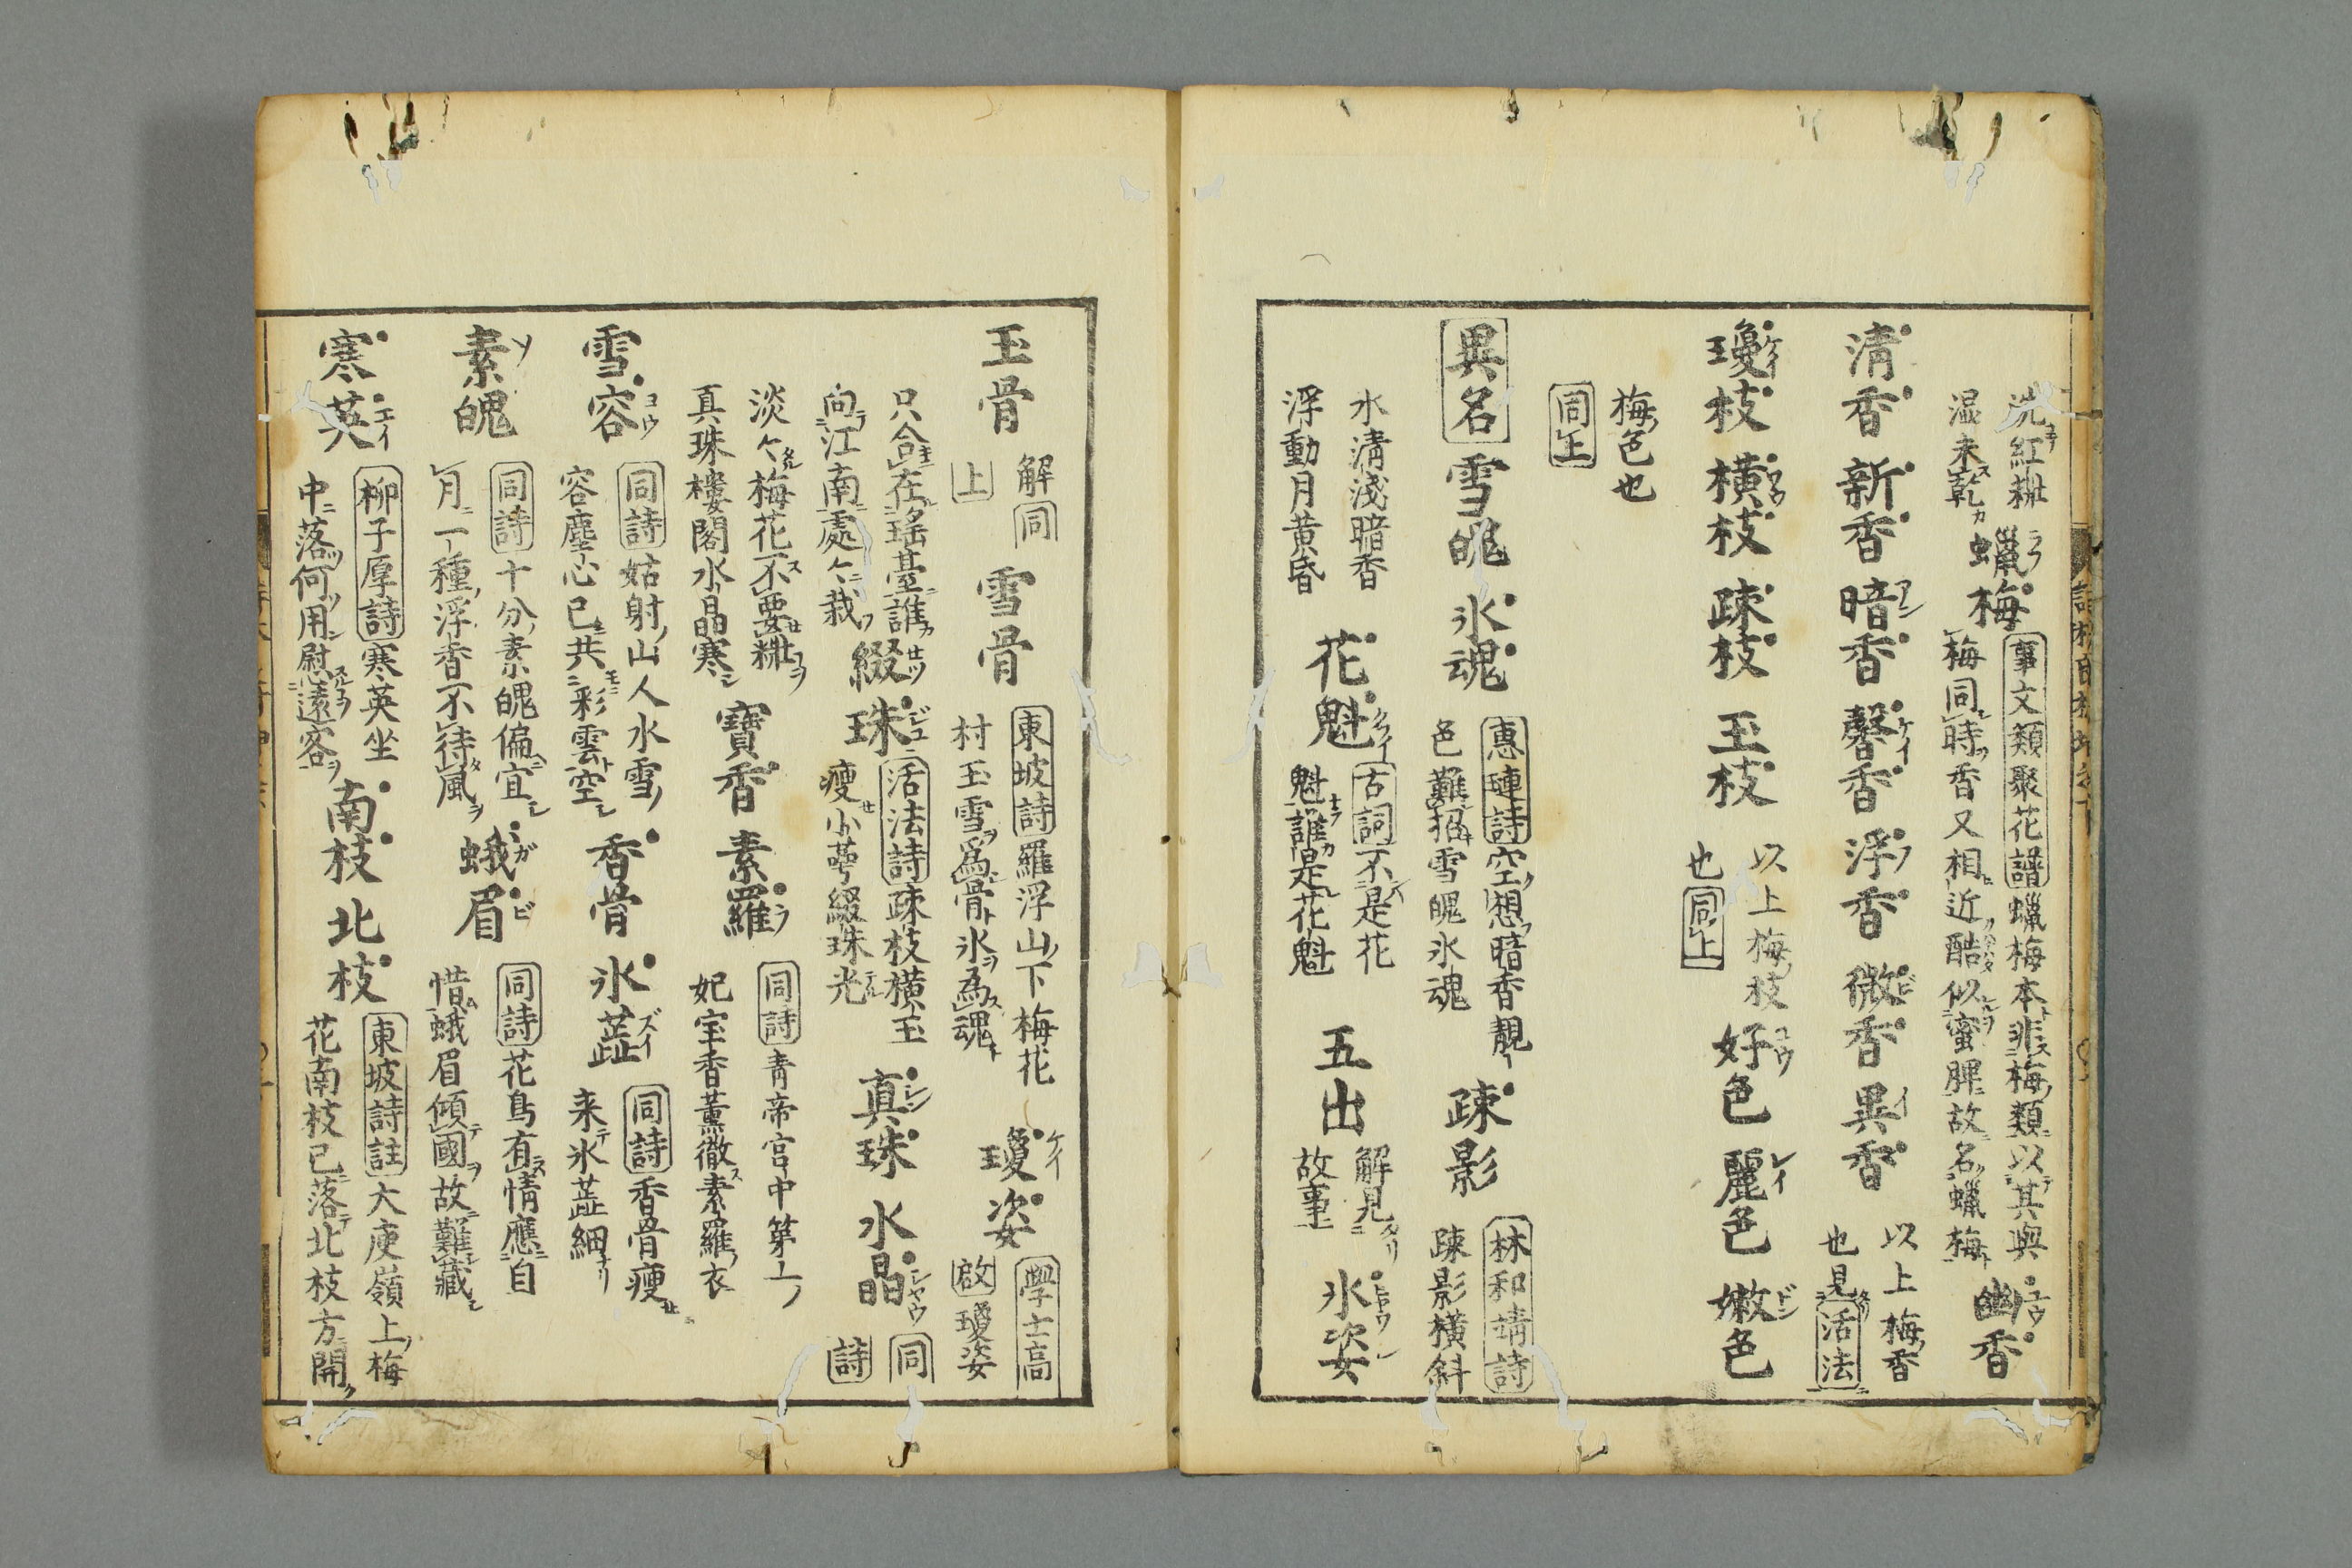 洗紅粧
湿未乾
蠟梅
事文類聚花譜蠟梅本非梅類以其與
梅同時香又相近酷似蜜脾故名蠟梅
幽香
清香 新香 暗香 馨香 浮香 微香 異香
以上梅香
也見活法
瓊枝 横枝 疎枝 玉枝
以上梅枝
也同上
好色 麗色 嫩色
梅色也
同上
異名 雪魄 氷魂
惠璉詩空想暗香靚
色難招雪魄氷魂
疎影
林和靖詩
疎影横斜
水清淺暗香
浮動月黄昏
花魁
古詞不是花
魁誰是花魁
五出
解見
故事
氷姿
玉骨
解同
上
雪骨
東坡詩羅浮山下梅花
村玉雪爲骨氷為魂
瓊姿
學士高
啟瓊姿
只合在瑶臺誰
向江南處々栽
綴珠
活法詩疎枝横玉
瘦小萼綴珠光
真珠 水晶
同
詩
淡々梅花不要粧
真珠樓閣水晶寒
寶香 素羅
同詩青帝宮中第一
妃宝香薫徹素羅衣
雪容
同詩姑射山人水雪
容塵心已共彩雲空
香骨 氷蕋
同詩香骨瘦
来氷蕋細
素魄
同詩十分素魄偏宜
月一種浮香不待風
蛾眉
同詩花鳥有情應自
惜蛾眉傾國故難藏
寒英
柳子厚詩寒英坐
中落何用慰遠客
南枝 北枝
東坡詩註大庾嶺上梅
花南枝已落北枝方開